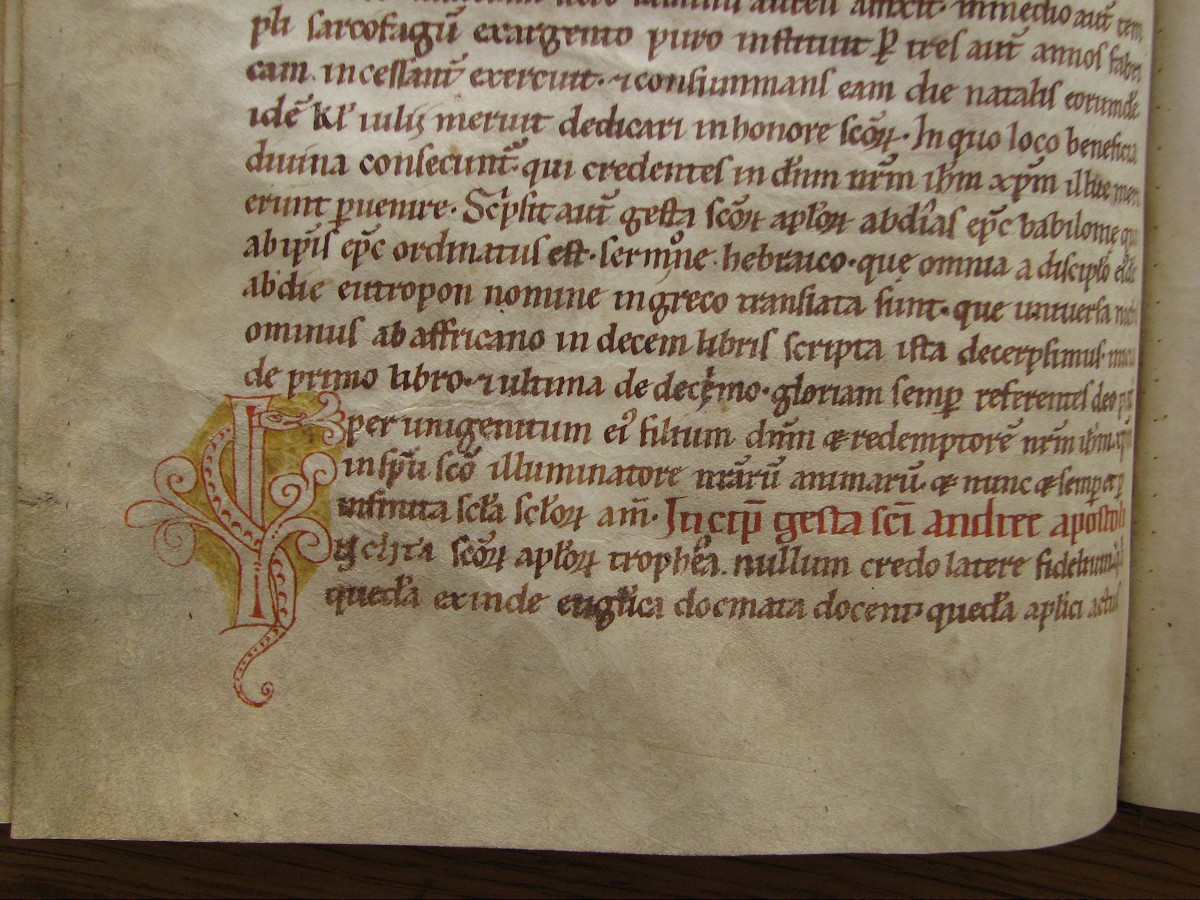 pli sarcofagū exargento puro instituit ꝑ tres aut̄ annos fabri
cam incessant̄ exercuit· ⁊consummans eam die natalis eorundē
idē kł iulij meruit dedicari inhonore scōꝝ· In quo loco beneficia
diuina consecunt̄· qui credentes in dn̄m nr̄m ihm̄ xp̄m illuc mer
erunt ꝑuenire· Scͥpsit aut̄ gesta scōꝝ apłoꝝ abdias ep̄c babilonie qui
abip̄is ep̄c ordinatus est· sermone hebraico· que omnia a discipło
abdie eutropon nomine ingreco translata sunt· que uniuersa
ab affricano in decem libris scripta ista decerpsimus·
de primo libro· ⁊ultima de decimo· gloriam semꝑ referentes deo
per unigenitum eiꝰ filium dn̄m &redemptorē nr̄m ihm̄
inspū scō illuminatore nr̄arū animarū· & nunc &semper
infinita scła scłoꝝ am̄· Incip̄ gesta sc̄i andree apostoli
Inclita scōꝝ apłoꝝ trophea nullum credo latere fidelium
quedā exinde euglica docmata docent· quedā aplici actus